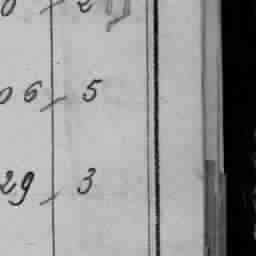 06 - 5
29 - 3